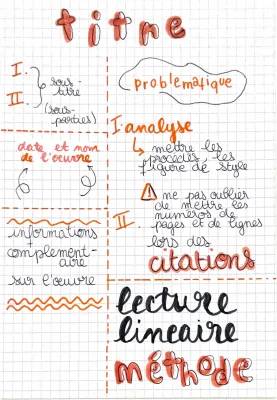 titre
I.
sous-
titre
II.
(sous-
parties)
date et nom
de l'œuvre
informations
complément-
aire
sur l'œuvre
problématique
I. analyse
mettre les
procédés, les
figure de style
ne pas oublier
de mettre les
numéros de
pages et de lignes
II.
lors des
citations
lecture
linéaire
méthode